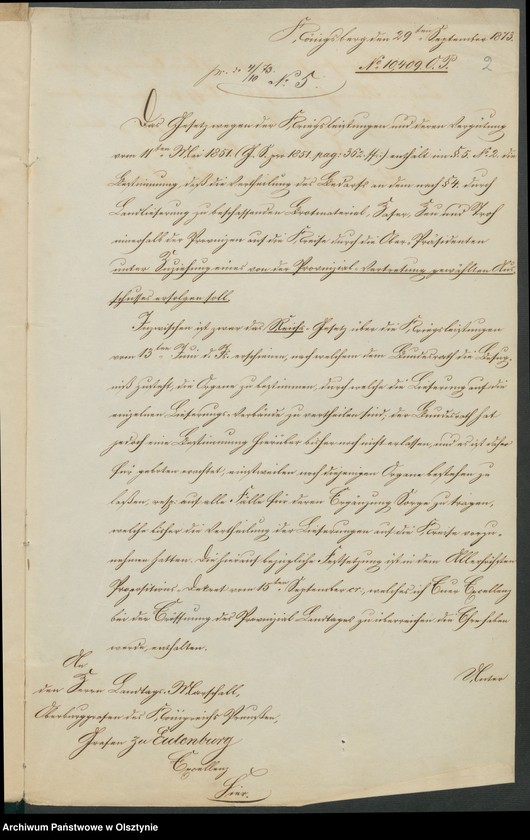 Königsberg den 29ten September 1873.
No 10,409. O. P.
2
pr. d. 4/10 73. No 5.
Das Gesetz wegen der Kriegsleistungen und deren Vergütung
vom 11ten Mai 1851. (G. S. pro 1851. pag: 362. ff.) enthält im §. 5. No 2. die
Bestimmung, daß die Vertheilung des Bedarfs an dem nach §4. durch
Landlieferung zu beschaffenden Brotmaterial, Hafer, Heu und Stroh
innerhalb der Provinzen auf die Kreise durch die Ober-Präsidenten
unter Zuziehung eines von der Provinzial-Vertretung gewählten Aus-
schusses erfolgen soll.
Inzwischen ist zwar das Reichs-Gesetz über die Kriegsleistungen
vom 13ten Juni d. J. erschienen, nach welchem dem Bundesrath die Befug-
niß zusteht, die Organe zu bestimmen, durch welche die Lieferung auf die
einzelnen Lieferungs-Verbände zu vertheilen sind, der Bundesrath hat
jedoch eine Bestimmung hierüber bisher noch nicht erlassen, und es ist daher
für geboten erachtet, einstweilen noch diejenigen Organe bestehen zu
lassen, resp. auf alle Fälle für deren Ergänzung Sorge zu tragen,
welche bisher die Vertheilung der Lieferungen auf die Kreise vorzu-
nehmen hatten. Die hierauf bezügliche Festsetzung ist in dem Allerhöchsten
Propositions-Dekret vom 15ten September cr., welches ich Eurer Excellenz
bei der Eröffnung des Provinzial-Landtages zu überreichen die Ehre haben
werde, enthalten.
Unter
An
den Herrn Landtags-Marschall,
Oberburggrafen des Königreichs Preußen,
Grafen zu Eulenburg
Excellenz
Hier.
Archiwum Państwowe w Olsztynie